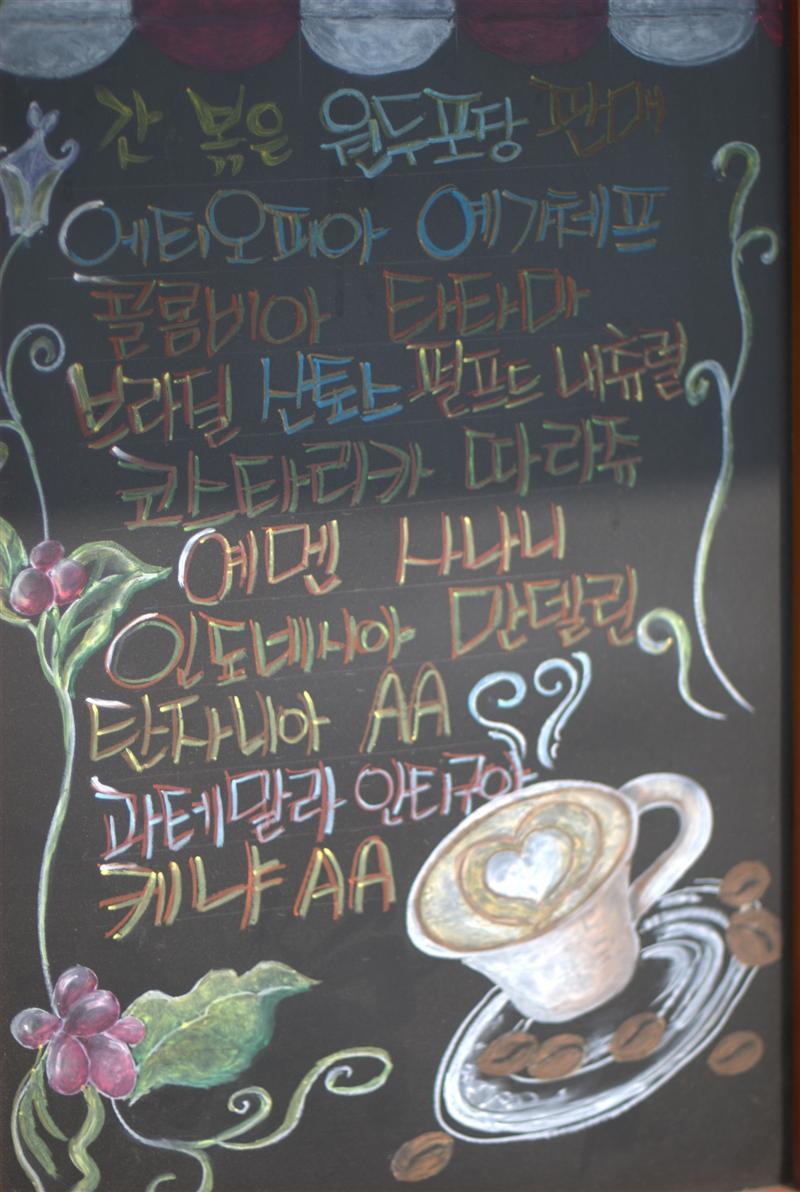 갓 볶은 원두포장 판매
에티오피아 예가체프
콜롬비아 타타마
브라질 산토스 펄프트 내츄럴
코스타리카 따라쥬
예멘 사나니
인도네시아 만델린
탄자니아 AA
과테말라 안티구아
케냐 AA